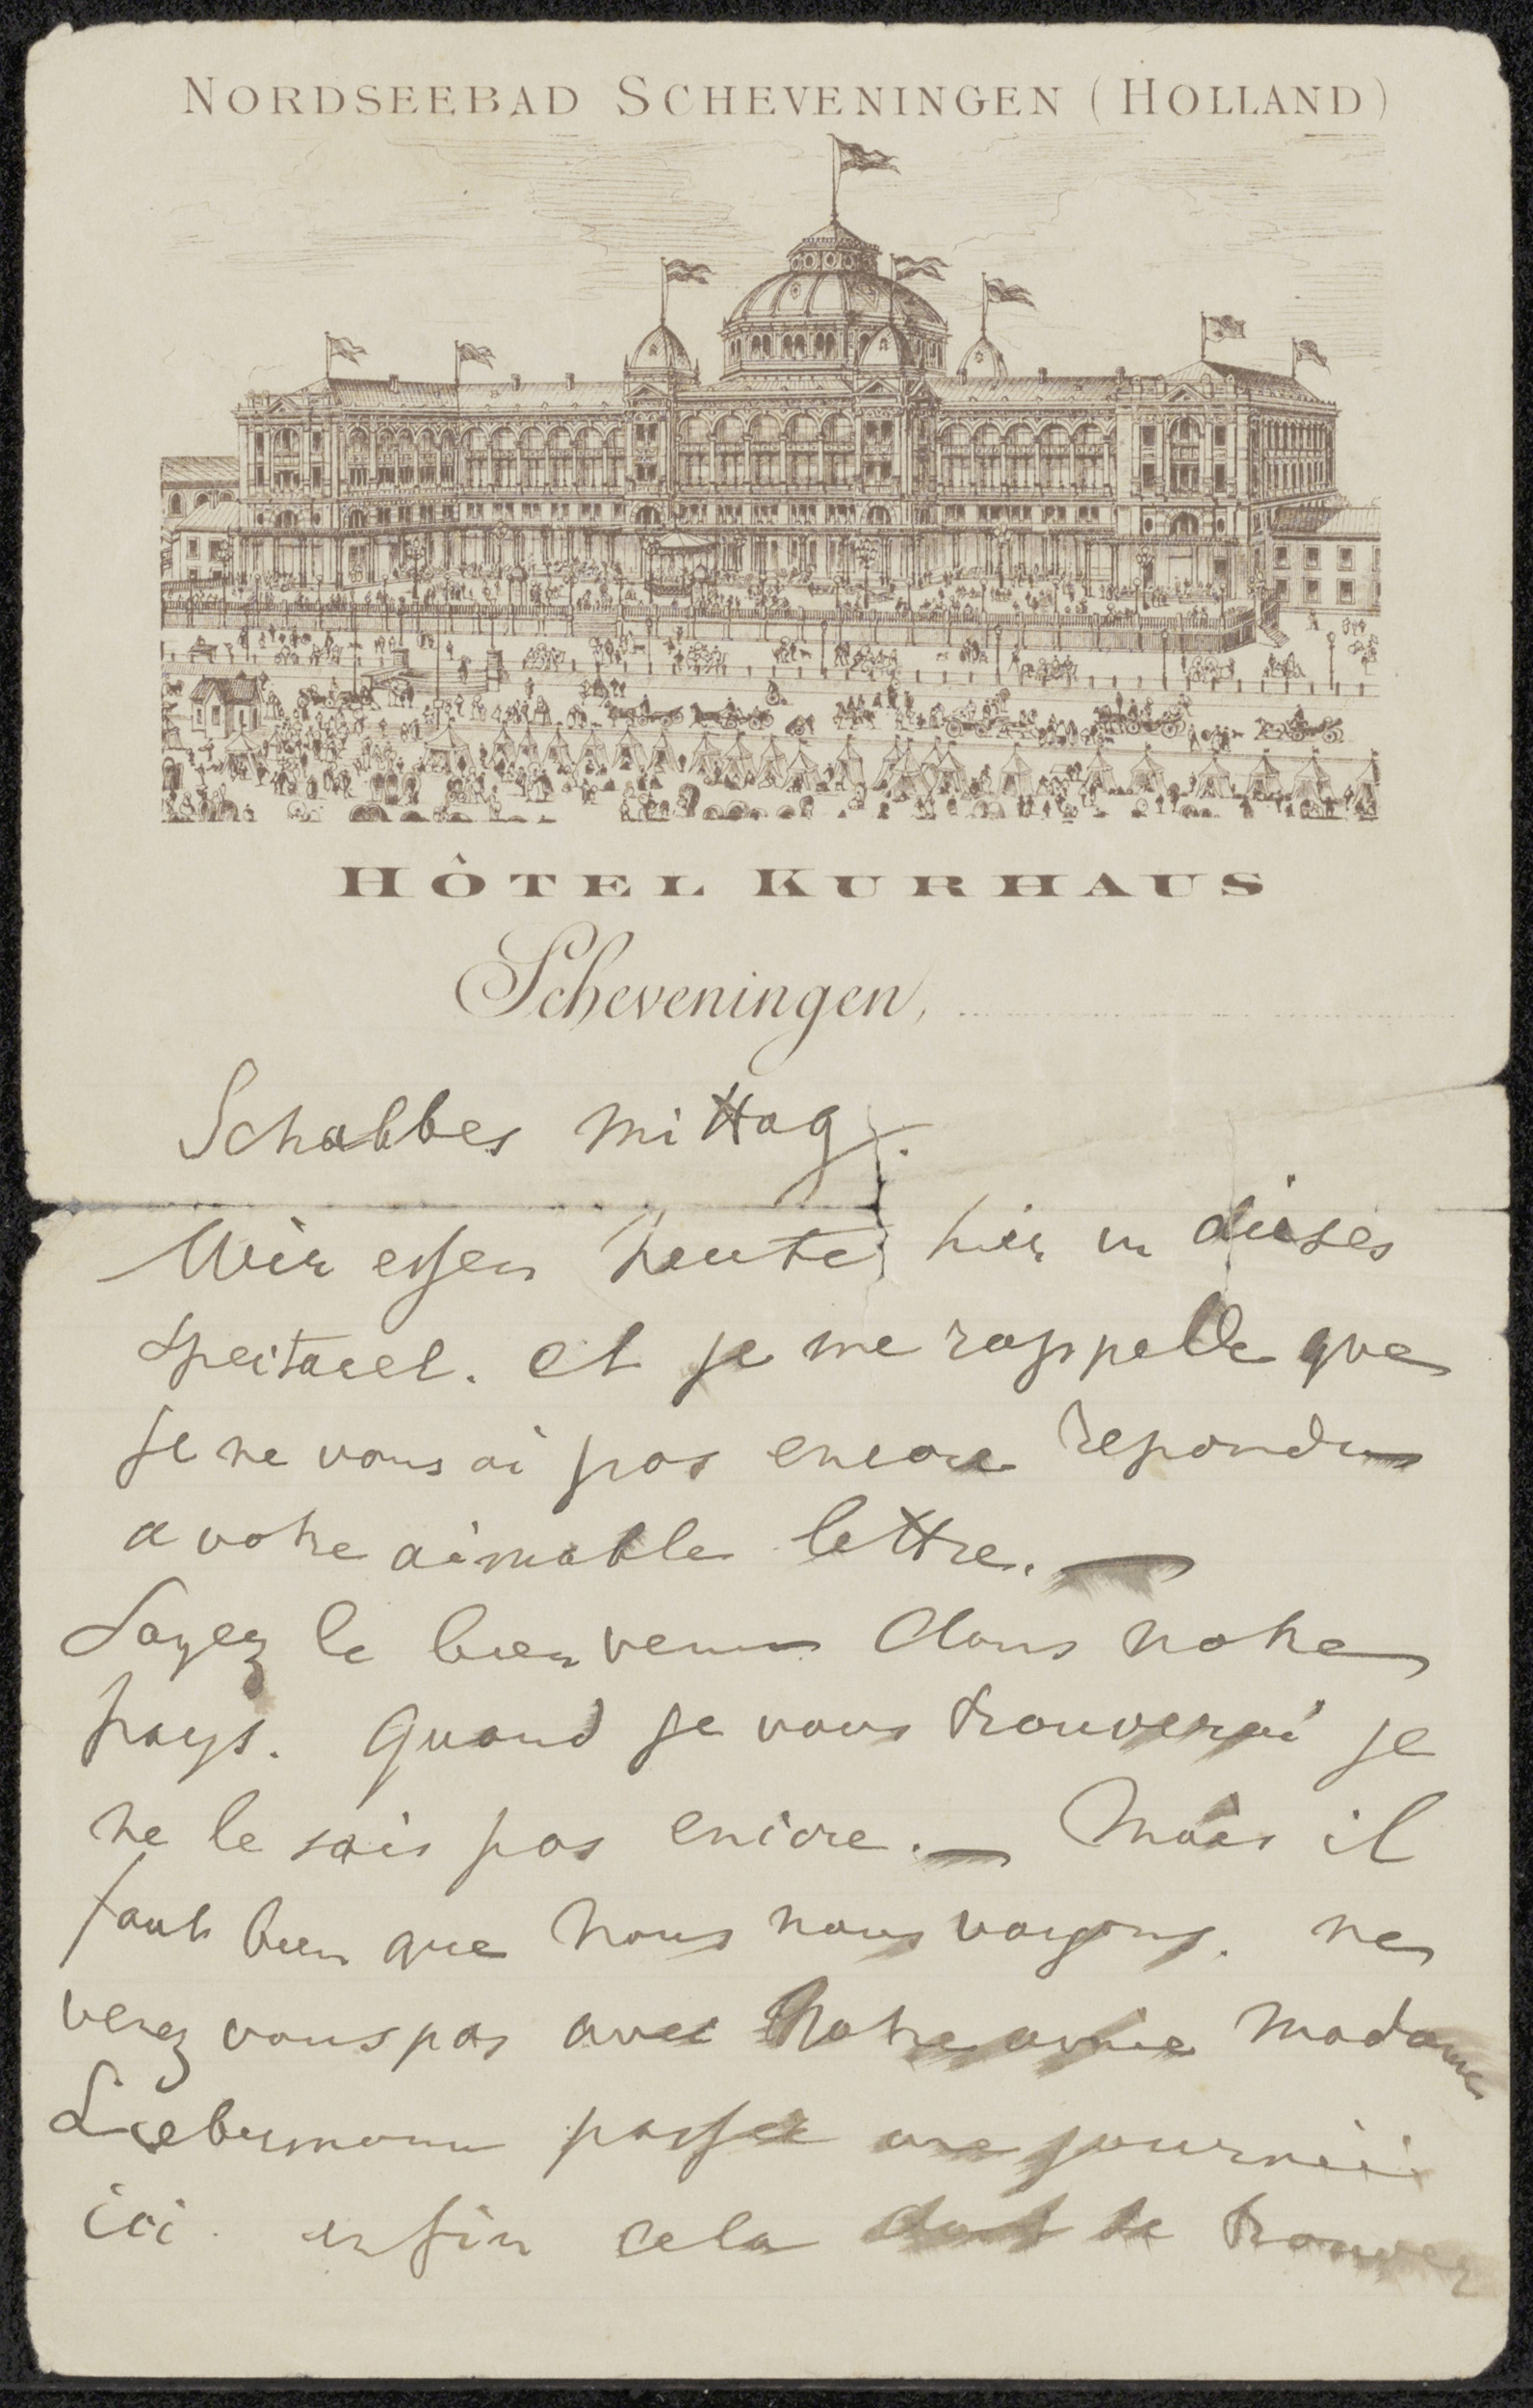 NORDSEEBAD SCHEVENINGEN (HOLLAND)
HÔTEL KURHAUS
Scheveningen,
Schabbes Mittag.
Wir essen heute hier in dieses
Spectacel. et je me rappelle que
je ne vous ai pas encore repondu
a votre aimable lettre. —
Soyez le bien venu dans notre
pays. Quand je vous trouverai je
ne le sais pas encore. — Mais il
faut bien que nous nous voyons. ne
venez vous pas avec Notre amie Madame
Liebermann passer une journéé
ici. enfin cela doit se trouver